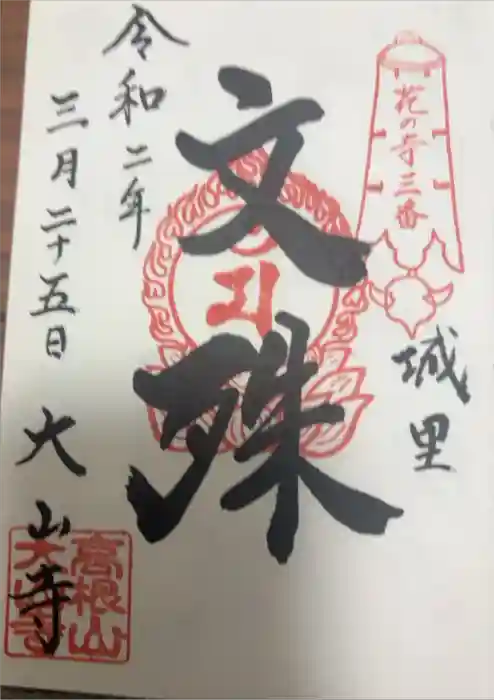 花の寺三番
城里
文殊
令和二年
三月二十五日
大山寺
高根山
大山寺